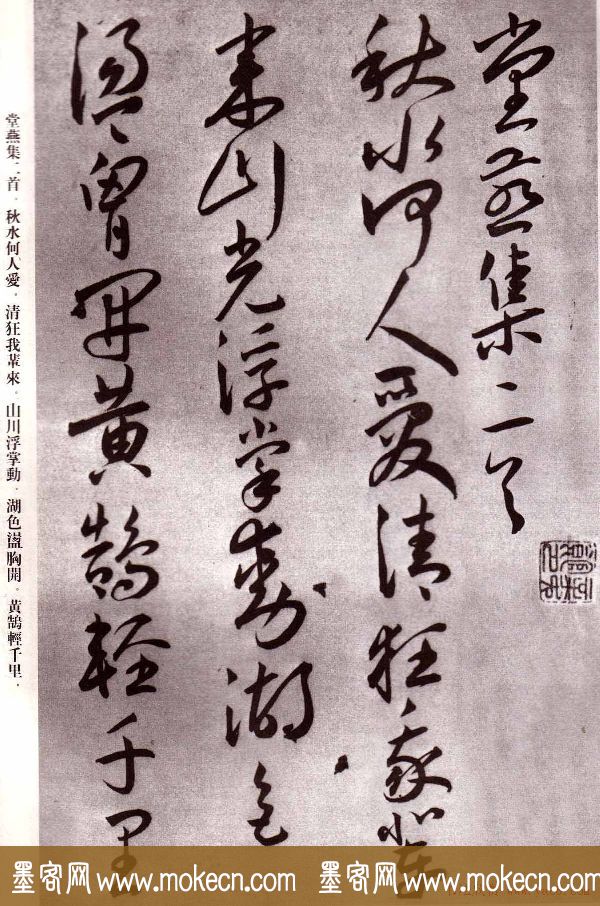 堂燕集二首
秋水何人愛清狂我輩
来山光浮掌動湖色
盪胷開黃鵠輕千里
堂燕集二首．秋水何人愛．清狂我輩來．山川浮掌動．湖色盪胸開．黃鵠輕千里．
墨客网 www.mokecn.com 墨客网 www.mokecn.com